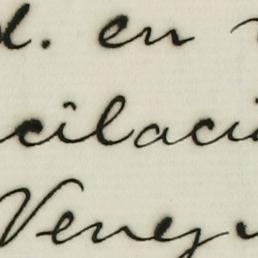 d. en
cilaci
Venez